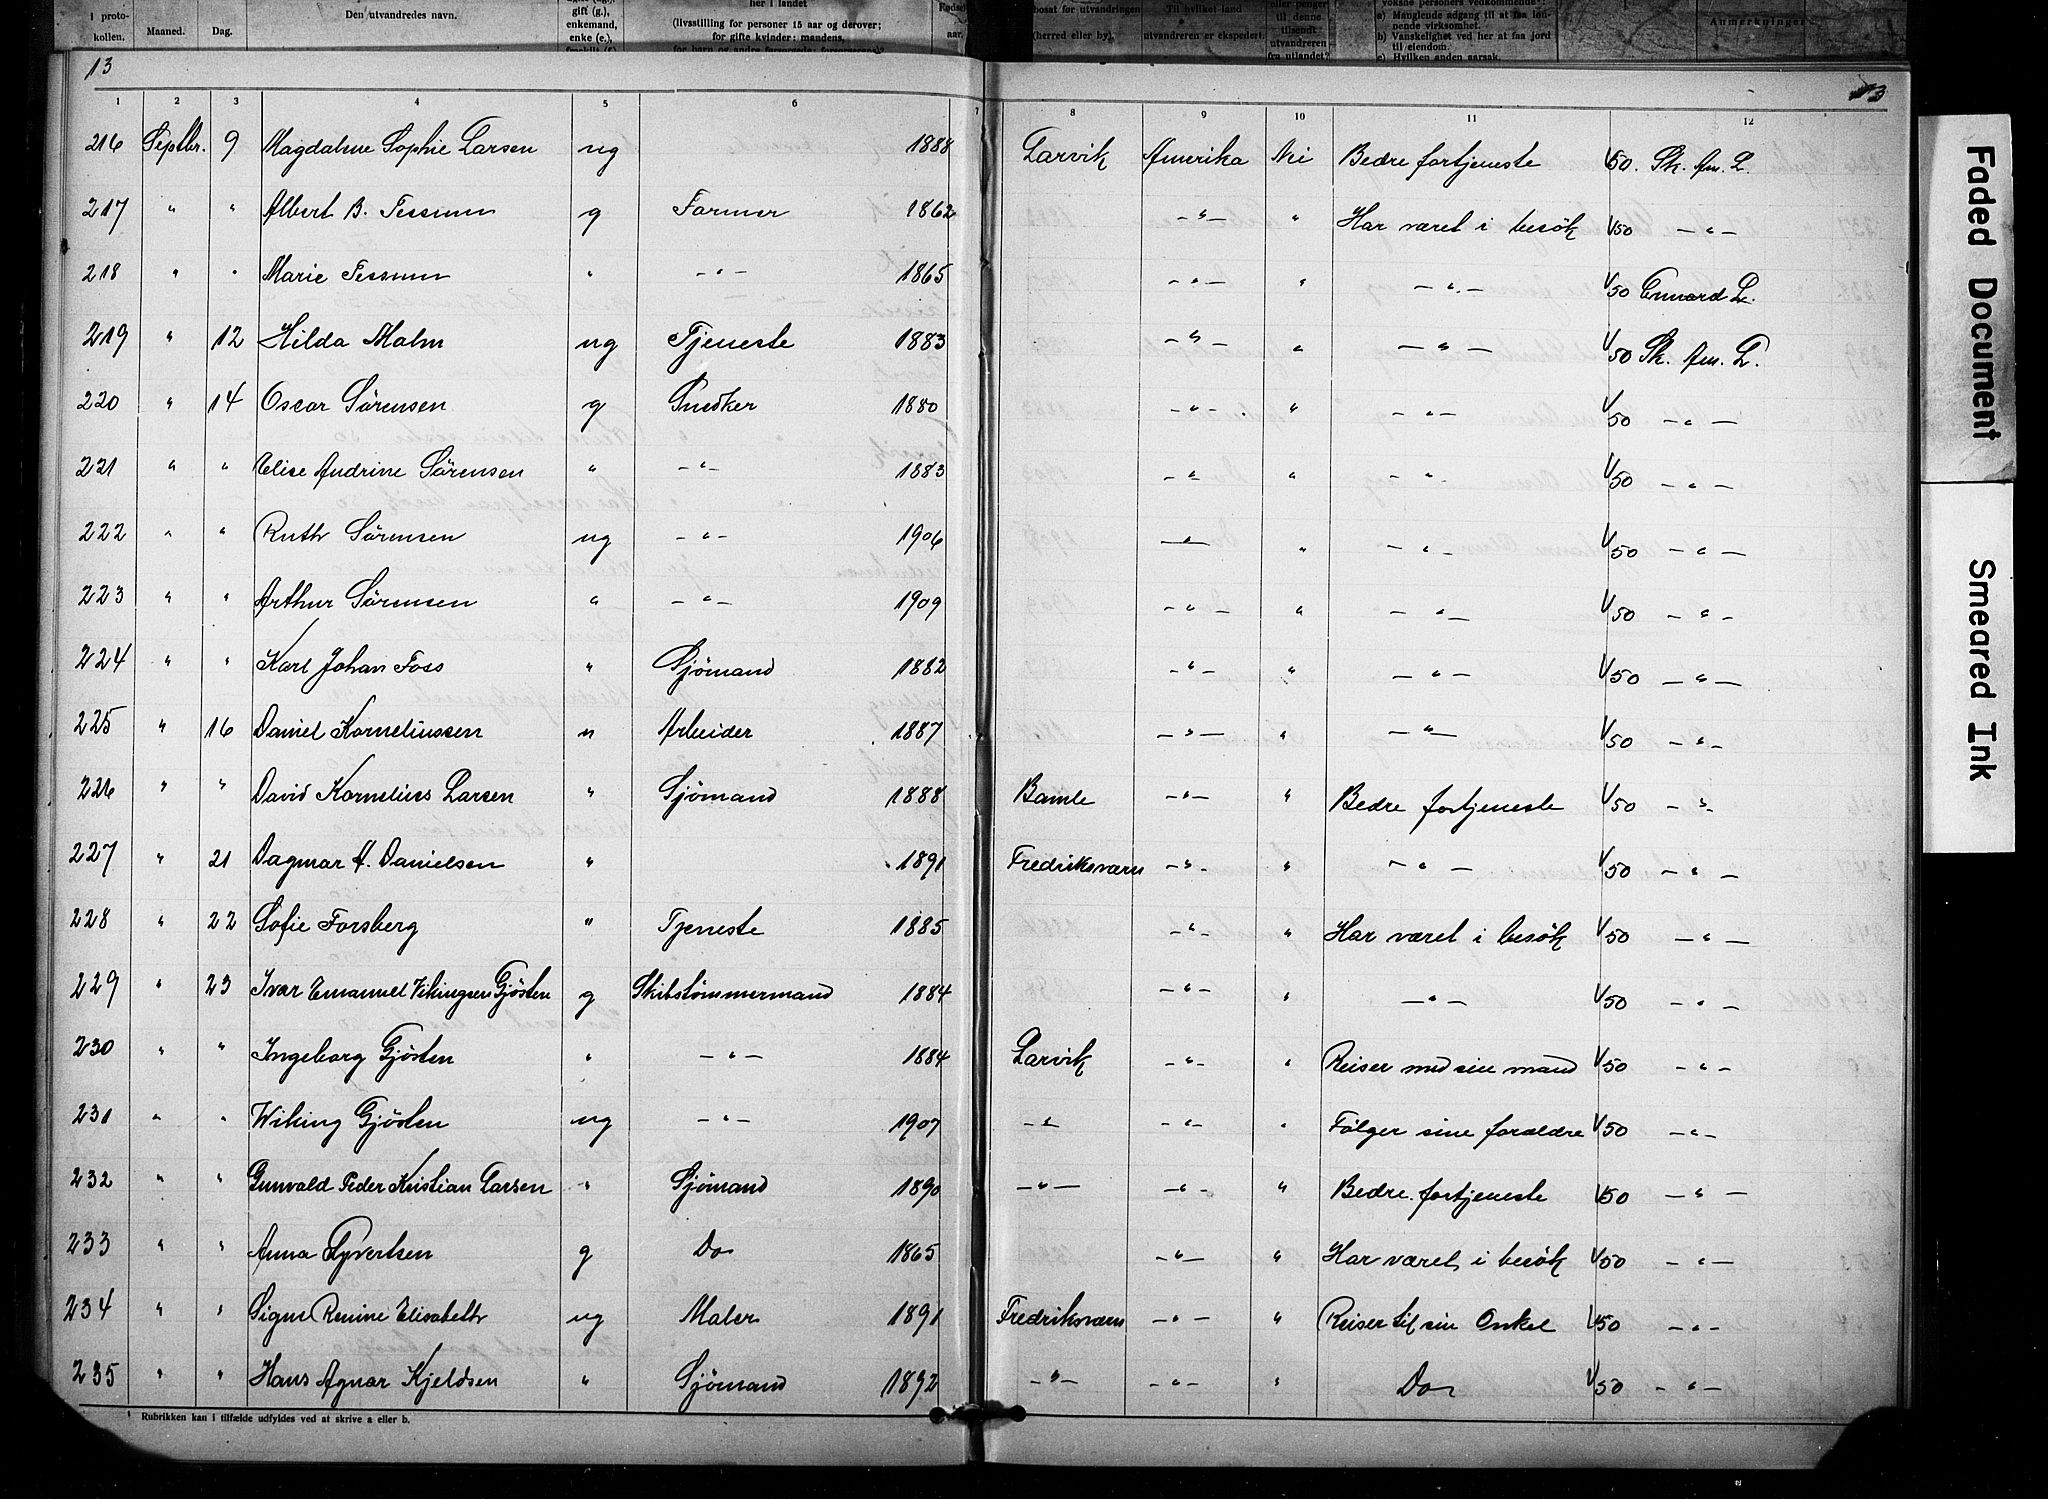 i proto-
kollen.
Maaned.
Dag.
Den utvandredes navn.
gift (g.),
enkemand,
enke (e.),
her i landet
(livsstilling for personer 15 aar og derover;
for gifte kvinder: mandens,
aar.
bosat for utvandringen
(herred eller by).
Til hvilket land
utvandreren er ekspedert.
eller penger
til denne
tilsendt
utvandreren
fra utlandet?
a) Manglende adgang til at faa løn-
nende virksomhet.
b) Vanskelighet ved her at faa jord
til eiendom.
c) Hvilken anden aarsak.
Anmerkninger
13
13
1 2 3 4 5 6 7 8 9 10 11 12
216 Septbr. 9 Magdalene Sophie Larsen ug 1888 Larvik Amerika Nei Bedre fortjeneste 1/50. Sk. Am. L.
217 " " Albert B. Tessum g Farmer 1862 -"- " Har været i besök 1/50 -"-
218 " " Marie Tessum " -"- 1865 -"- " -"- 1/50 Cunard L.
219 " 12 Hilda Malm ug Tjeneste 1883 -"- " -"- 1/50 Sk. Am. L.
220 " 14 Oscar Sörensen g Snedker 1880 -"- " -"- 1/50 -"-
221 " " Elise Andrine Sörensen " -"- 1883 -"- " -"- 1/50 -"-
222 " " Ruth Sörensen ug -"- 1906 -"- " -"- 1/50 -"-
223 " " Arthur Sörensen " -"- 1909 -"- " -"- 1/50 -"-
224 " " Karl Johan Foss " Sjömand 1882 -"- " -"- 1/50 -"-
225 " 16 Daniel Korneliussen " Arbeider 1887 -"- " -"- 1/50 -"-
226 " " David Kornelius Larsen " Sjömand 1888 Bamle -"- " Bedre fortjeneste 1/50 -"-
227 " 21 Dagmar A. Danielsen " 1891 Fredriksværn -"- " -"- 1/50 -"-
228 " 22 Sofie Forsberg " Tjeneste 1885 -"- " Har været i besök 1/50 -"-
229 " 23 Ivar Emanuel Vikingsen Gjösten g Skibstömmermand 1884 -"- " -"- 1/50 -"-
230 " " Ingeborg Gjösten " -"- 1884 Larvik -"- " Reiser med sin mand 1/50 -"-
231 " " Wiking Gjösten ug -"- 1907 -"- -"- " Fölger sine forældre 1/50 -"-
232 " " Gunvald Peder Kristian Larsen " Sjömand 1890 -"- -"- " Bedre fortjeneste 1/50 -"-
233 " " Anna Syvertsen g Do 1865 -"- " Har været i besök 1/50 -"-
234 " " Signe Elisabeth ug Maler 1891 Fredriksværn -"- " Reiser til sin Onkel 1/50 -"-
235 " " Hans Agnar Kjeldsen " Sjömand 1892 -"- -"- " Do 1/50 -"-
¹ Rubrikken kan i tilfælde udfyldes ved at skrive a eller b.
Faded Document
Smeared Ink